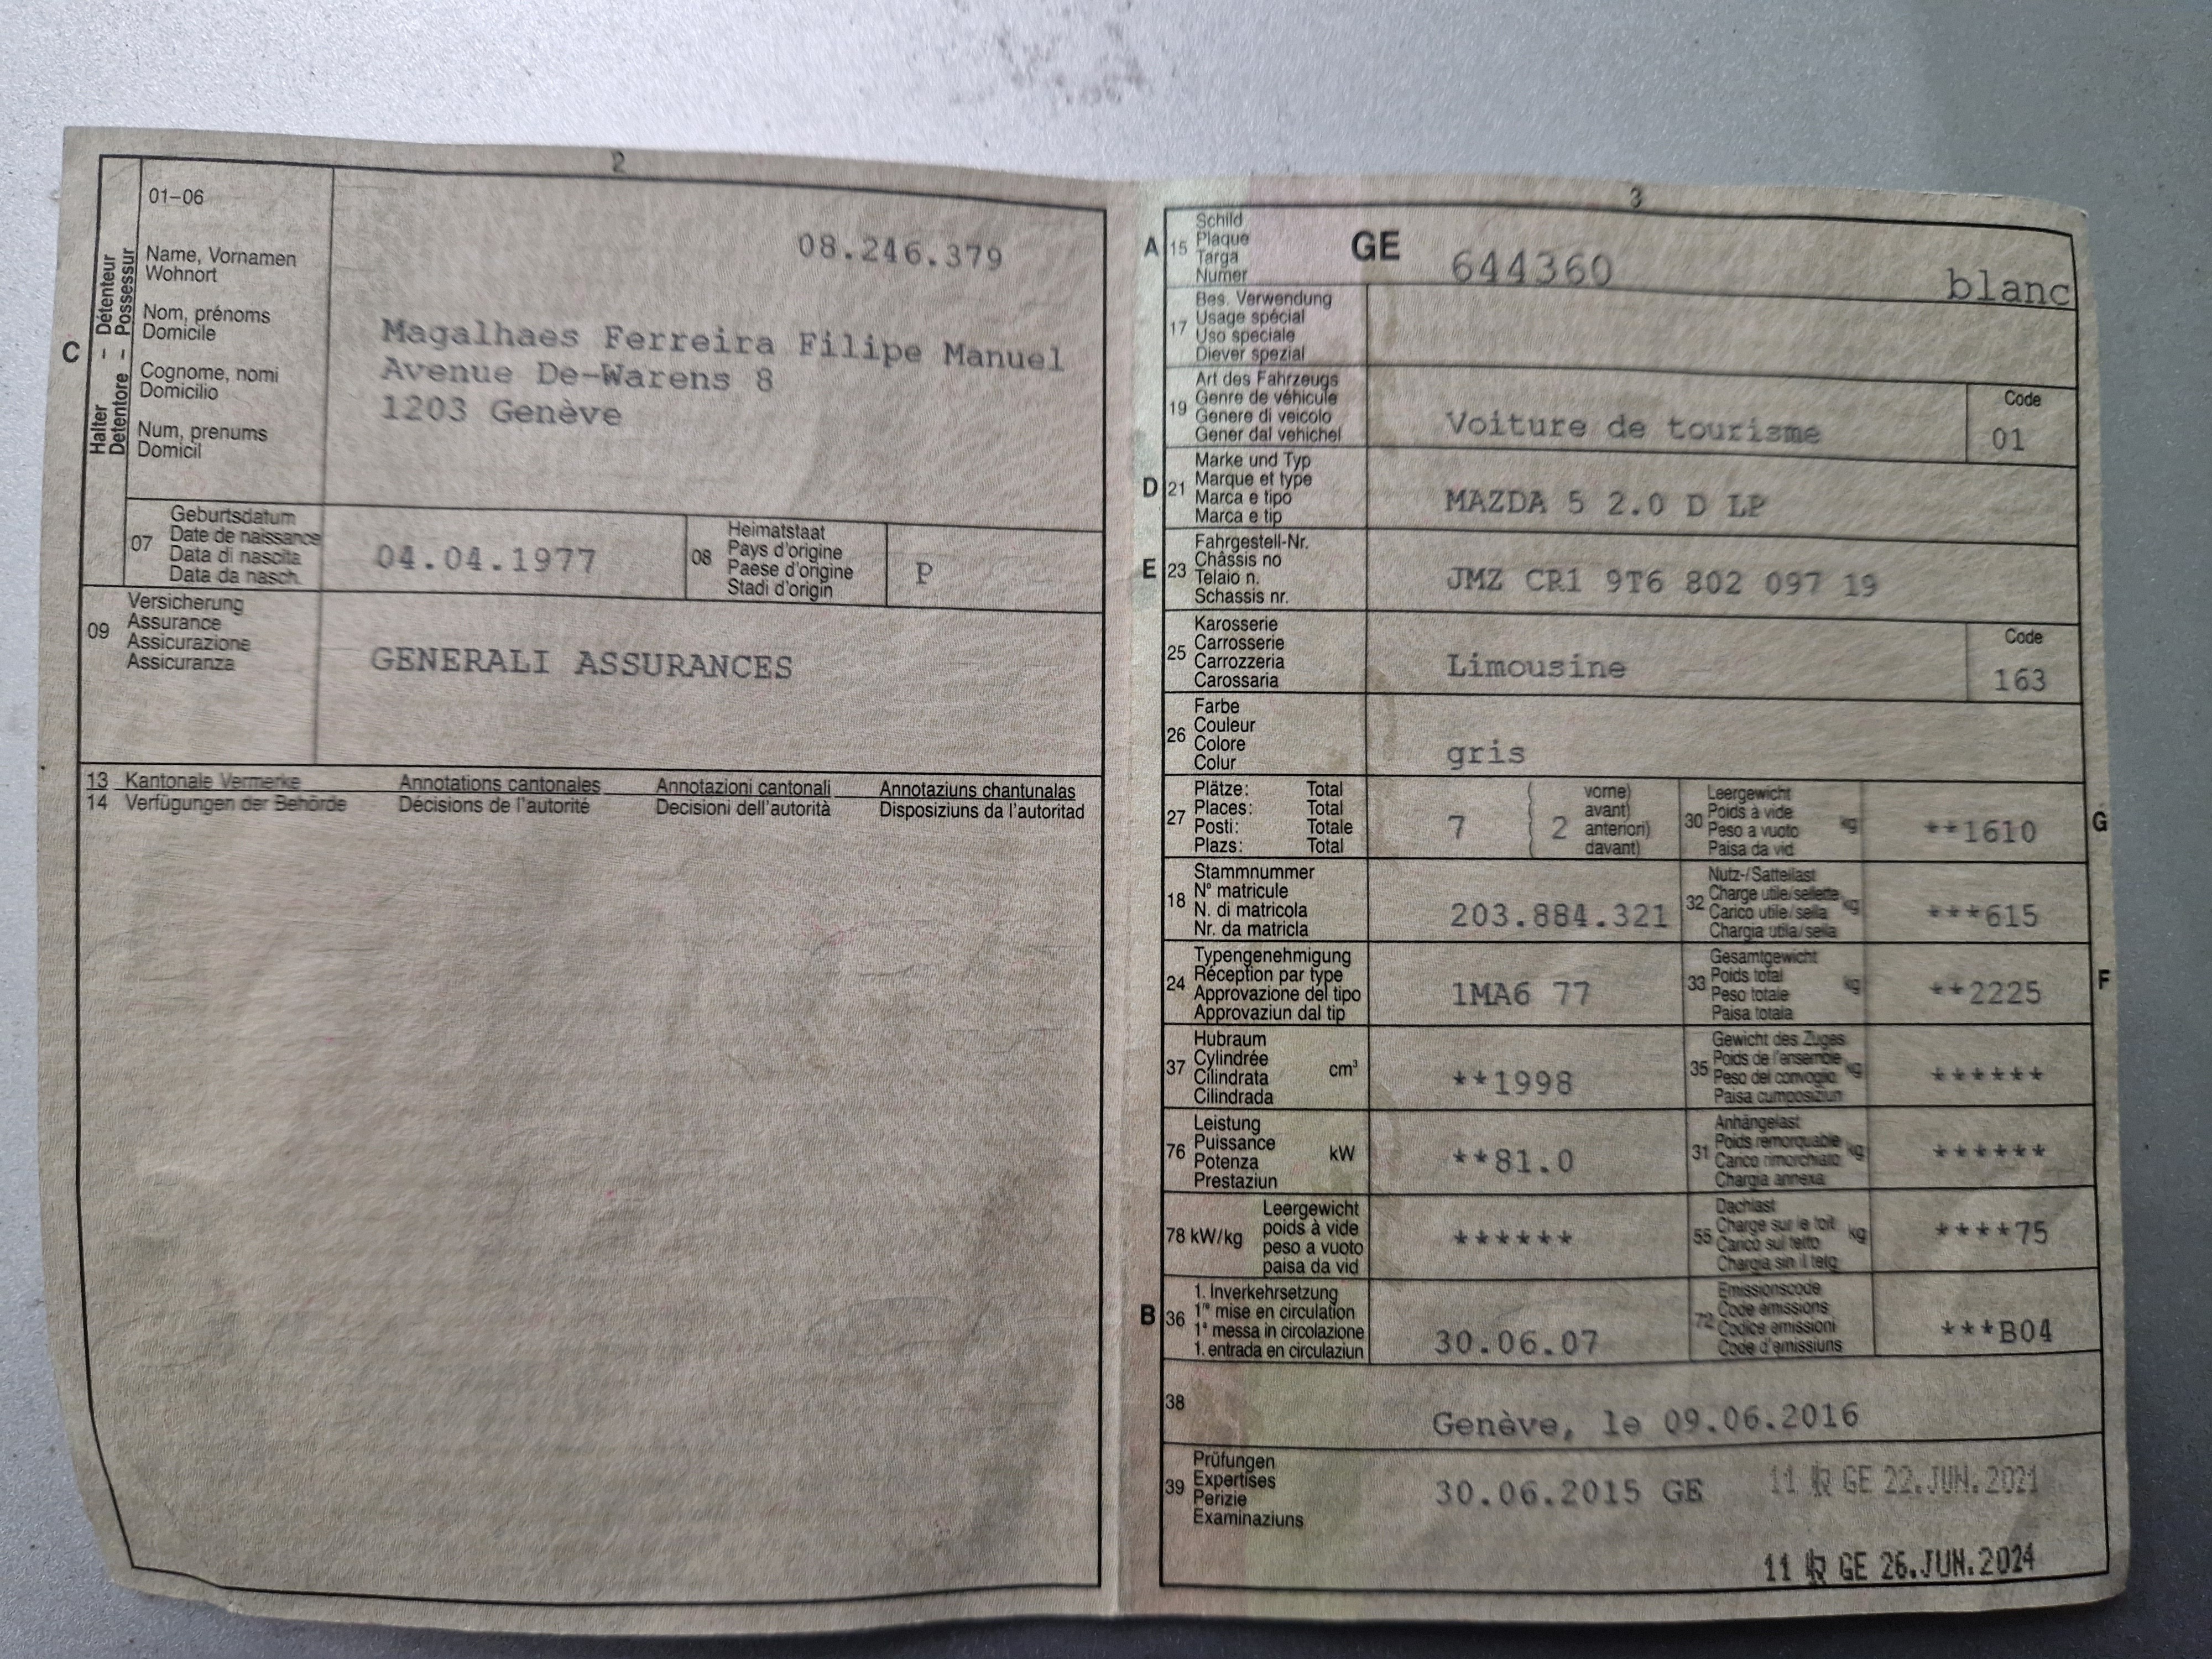 2
01–06
08.246.379
C
Halter – Détenteur
Detentore – Possessur
Name, Vornamen
Wohnort
Nom, prénoms
Domicile
Cognome, nomi
Domicilio
Num, prenums
Domicil
Magalhaes Ferreira Filipe Manuel
Avenue De-Warens 8
1203 Genève
07
Geburtsdatum
Date de naissance
Data di nascita
Data da nasch.
04.04.1977
08
Heimatstaat
Pays d'origine
Paese d'origine
Stadi d'origin
P
09
Versicherung
Assurance
Assicurazione
Assicuranza
GENERALI ASSURANCES
13 Kantonale Vermerke Annotations cantonales Annotazioni cantonali Annotaziuns chantunalas
14 Verfügungen der Behörde Décisions de l'autorité Decisioni dell'autorità Disposiziuns da l'autoritad
3
A 15
Schild
Plaque
Targa
Numer
GE 644360 blanc
17
Bes. Verwendung
Usage spécial
Uso speciale
Diever spezial
19
Art des Fahrzeugs
Genre de véhicule
Genere di veicolo
Gener dal vehichel
Voiture de tourisme
Code
01
D 21
Marke und Typ
Marque et type
Marca e tipo
Marca e tip
MAZDA 5 2.0 D LP
E 23
Fahrgestell-Nr.
Châssis no
Telaio n.
Schassis nr.
JMZ CR1 9T6 802 097 19
25
Karosserie
Carrosserie
Carrozzeria
Carossaria
Limousine
Code
163
26
Farbe
Couleur
Colore
Colur
gris
27
Plätze: Total
Places: Total
Posti: Totale
Plazs: Total
7
2
vorne)
avant)
anteriori)
davant)
30
Leergewicht
Poids à vide
Peso a vuoto
Paisa da vid
kg
**1610
G
18
Stammnummer
N° matricule
N. di matricola
Nr. da matricla
203.884.321
32
Nutz-/Sattellast
Charge utile/sellette
Carico utile/sella
Chargia utila/sella
kg
***615
24
Typengenehmigung
Réception par type
Approvazione del tipo
Approvaziun dal tip
1MA6 77
33
Gesamtgewicht
Poids total
Peso totale
Paisa totala
kg
**2225
F
37
Hubraum
Cylindrée
Cilindrata
Cilindrada
cm³
**1998
35
Gewicht des Zuges
Poids de l'ensemble
Peso del convoglio
Paisa cumposiziun
kg
******
76
Leistung
Puissance
Potenza
Prestaziun
kW
**81.0
31
Anhängelast
Poids remorquable
Carico rimorchiato
Chargia annexa
kg
******
78 kW/kg
Leergewicht
poids à vide
peso a vuoto
paisa da vid
******
55
Dachlast
Charge sur le toit
Carico sul tetto
Chargia sin il tetg
kg
****75
B 36
1. Inverkehrsetzung
1re mise en circulation
1a messa in circolazione
1. entrada en circulaziun
30.06.07
72
Emissionscode
Code émissions
Codice emissioni
Code d'emissiuns
***B04
38
Genève, le 09.06.2016
39
Prüfungen
Expertises
Perizie
Examinaziuns
30.06.2015 GE
11 GE 22.JUN.2021
11 GE 26.JUN.2024